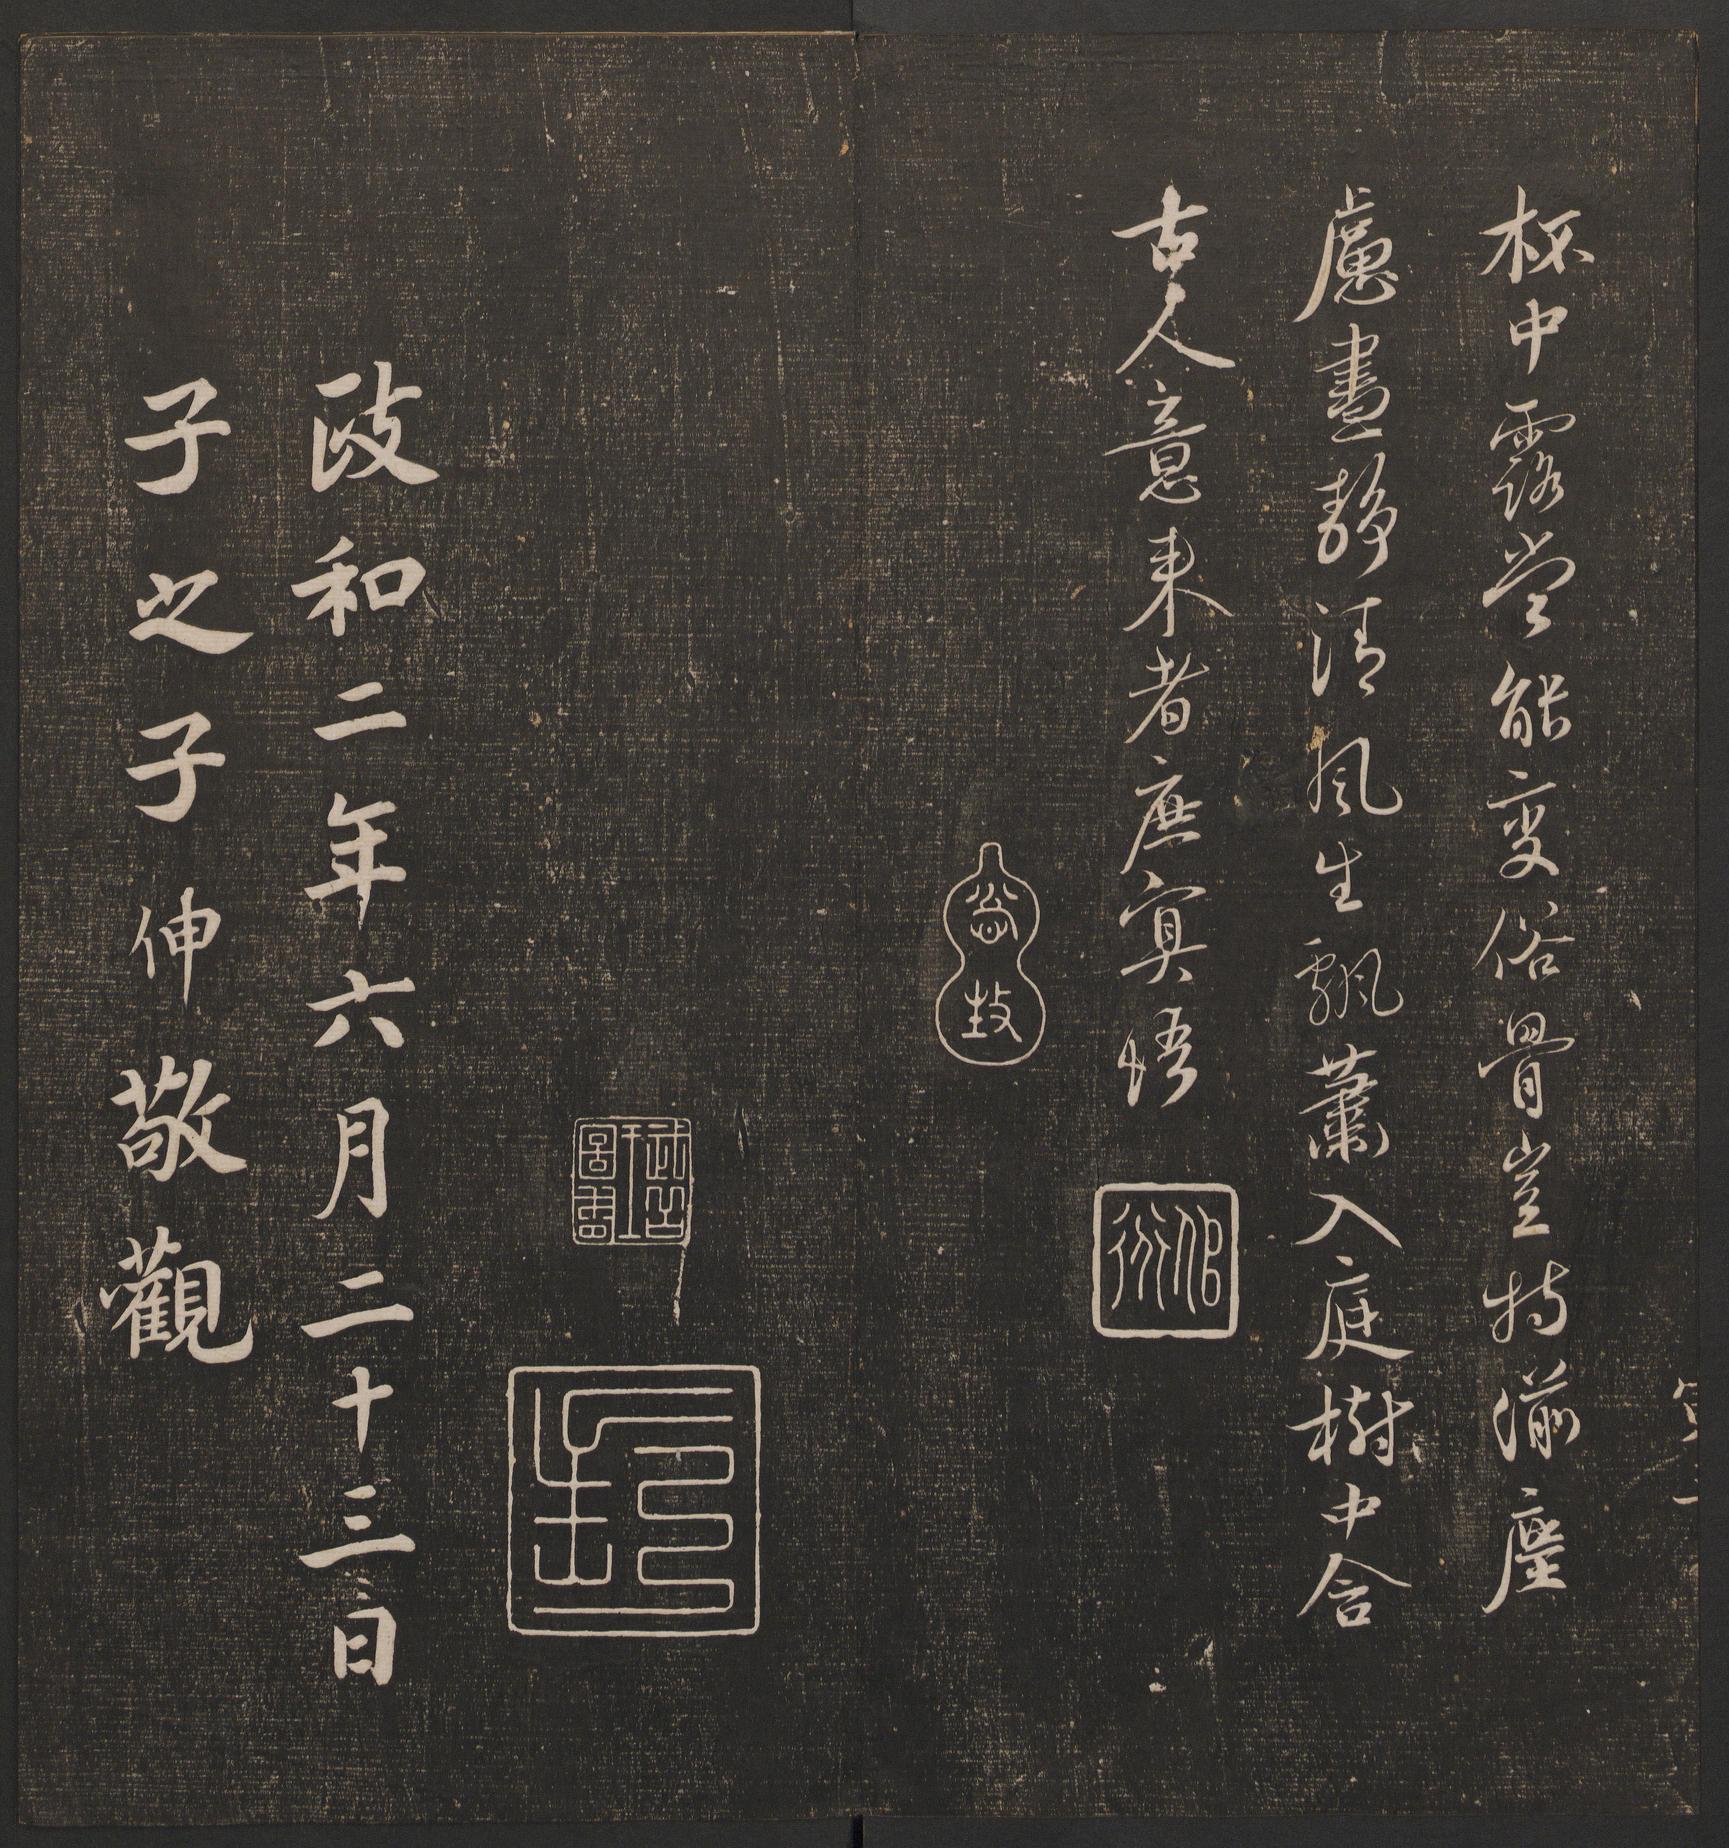 杯中露當能变俗骨豈特湔塵
慮晝靜清風生飄蕭入庭樹中含
古人意来者庶冥悟
政和二年六月二十三日
子之子伸敬觀